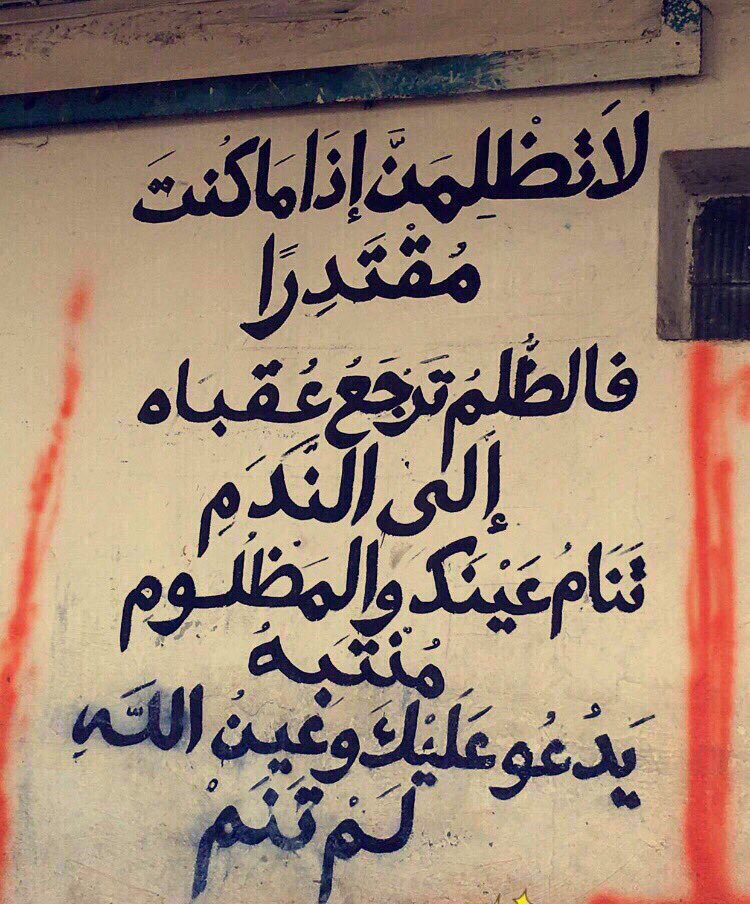 لَا تَظْلِمَنَّ إِذَا مَا كُنتَ
مُقْتَدِرًا
فالظُّلمُ تَرجَعُ عُقباه
إلى النَّدَمِ
تَنَامُ عَيْنَك والمَظْلُومِ
مُنْتَبِهُ
يَدُعُو عَلَيْكَ وَعَينُ اللَّهِ
لَمْ تَنَمْ